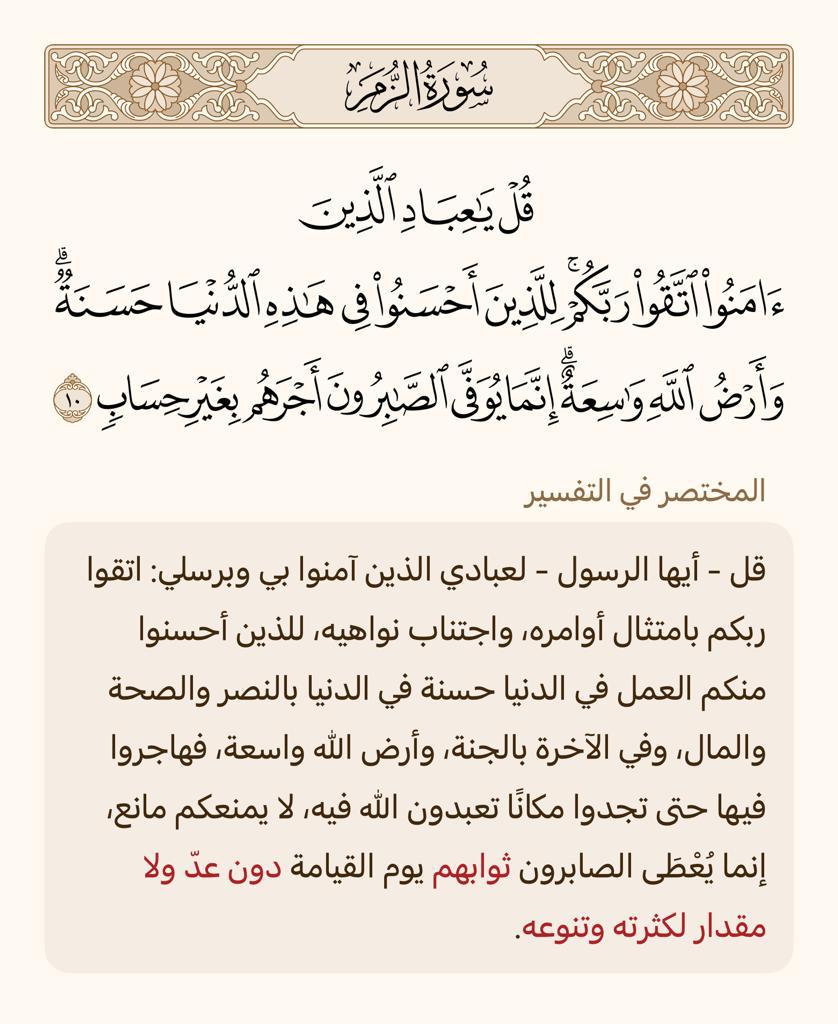 سُورَةُ الزُّمَرِ
قُلْ يَٰعِبَادِ ٱلَّذِينَ
ءَامَنُوا۟ ٱتَّقُوا۟ رَبَّكُمْ ۚ لِلَّذِينَ أَحْسَنُوا۟ فِى هَٰذِهِ ٱلدُّنْيَا حَسَنَةٌ ۗ
وَأَرْضُ ٱللَّهِ وَٰسِعَةٌ ۗ إِنَّمَا يُوَفَّى ٱلصَّٰبِرُونَ أَجْرَهُم بِغَيْرِ حِسَابٍ ١٠
المختصر في التفسير
قل - أيها الرسول - لعبادي الذين آمنوا بي وبرسلي: اتقوا
ربكم بامتثال أوامره، واجتناب نواهيه، للذين أحسنوا
منكم العمل في الدنيا حسنة في الدنيا بالنصر والصحة
والمال، وفي الآخرة بالجنة، وأرض الله واسعة، فهاجروا
فيها حتى تجدوا مكانًا تعبدون الله فيه، لا يمنعكم مانع،
إنما يُعْطَى الصابرون ثوابهم يوم القيامة دون عدّ ولا
مقدار لكثرته وتنوعه.